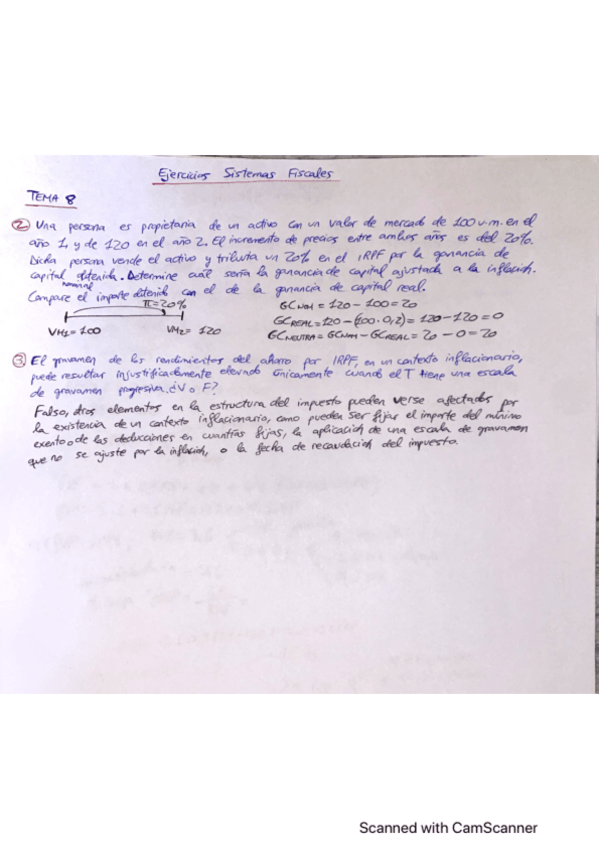 Ejercicios Sistemas Fiscales
TEMA 8
② Una persona es propietaria de un activo con un valor de mercado de 100 u.m. en el
año 1, y de 120 en el año 2. El incremento de precios entre ambos años es del 20%.
Dicha persona vende el activo y tributa un 20% en el IRPF por la ganancia de
capital obtenida. Determine cuál sería la ganancia de capital ajustada a la inflación.
Compare el importe obtenido con el de la ganancia de capital real.
nominal
π=20%
VM1=100
VM2= 120
GCNOM = 120 - 100 = 20
GCREAL = 120 - (100·0,2) = 120 - 120 = 0
GCNEUTRA = GCNOM - GCREAL = 20 - 0 = 20
③ El gravamen de los rendimientos del ahorro por IRPF, en un contexto inflacionario,
puede resultar injustificadamente elevado únicamente cuando el T tiene una escala
de gravamen progresiva. ¿V o F?
Falso, otros elementos en la estructura del impuesto pueden verse afectados por
la existencia de un contexto inflacionario, como pueden ser fijar el importe del mínimo
exento o de las deducciones en cuantías fijas, la aplicación de una escala de gravamen
que no se ajuste por la inflación, o la fecha de recaudación del impuesto.
Scanned with CamScanner